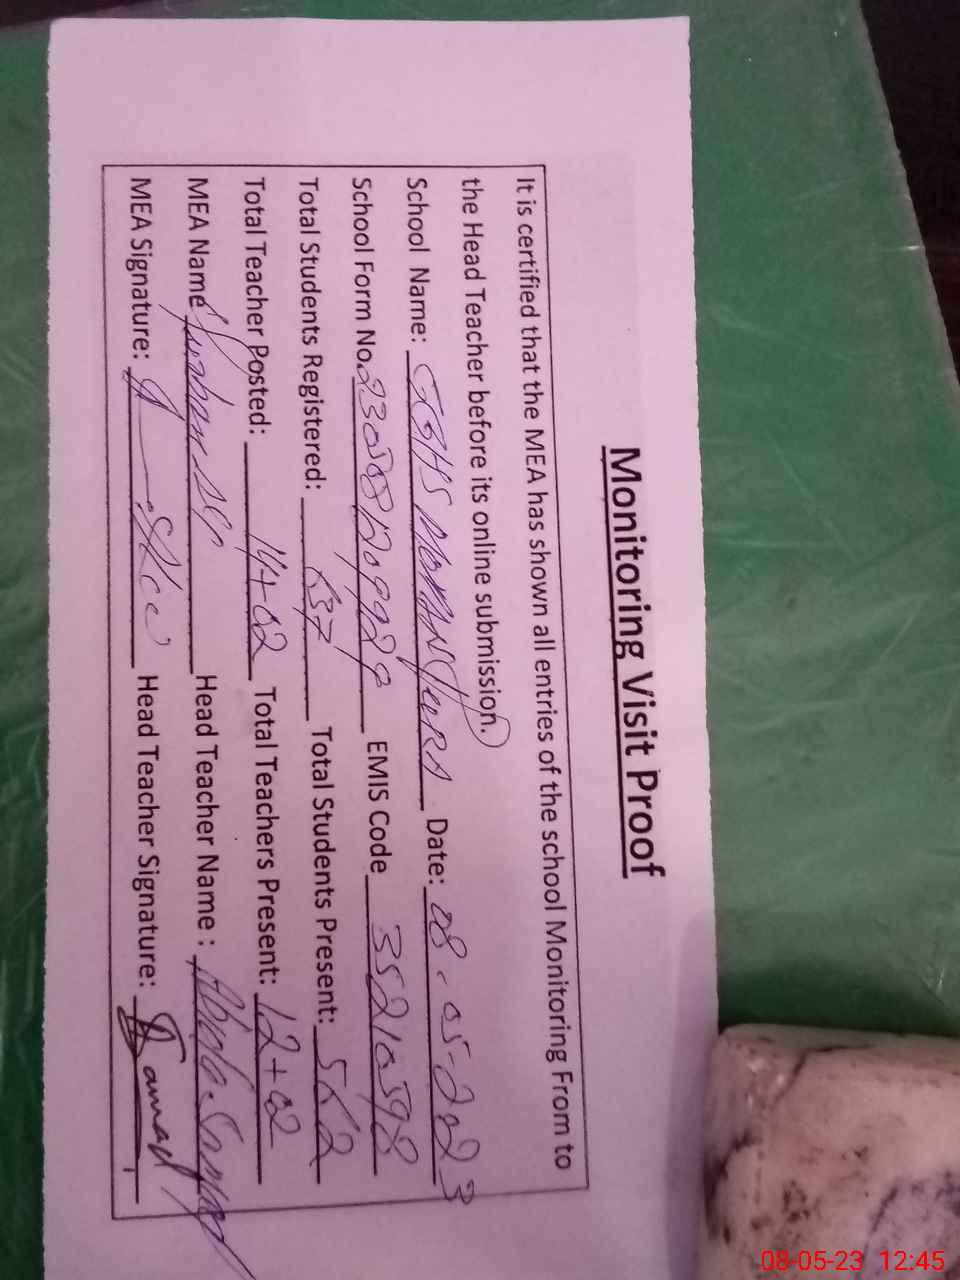 Monitoring Visit Proof
It is certified that the MEA has shown all entries of the school Monitoring From to
the Head Teacher before its online submission.
School Name: GGHS Date: 08-05-2023
School Form No. EMIS Code 35210598
Total Students Registered: 637 Total Students Present: 562
Total Teacher Posted: 14+02 Total Teachers Present: 12+02
MEA Name Head Teacher Name : Samad
MEA Signature: Head Teacher Signature: Samad
08-05-23 12:45